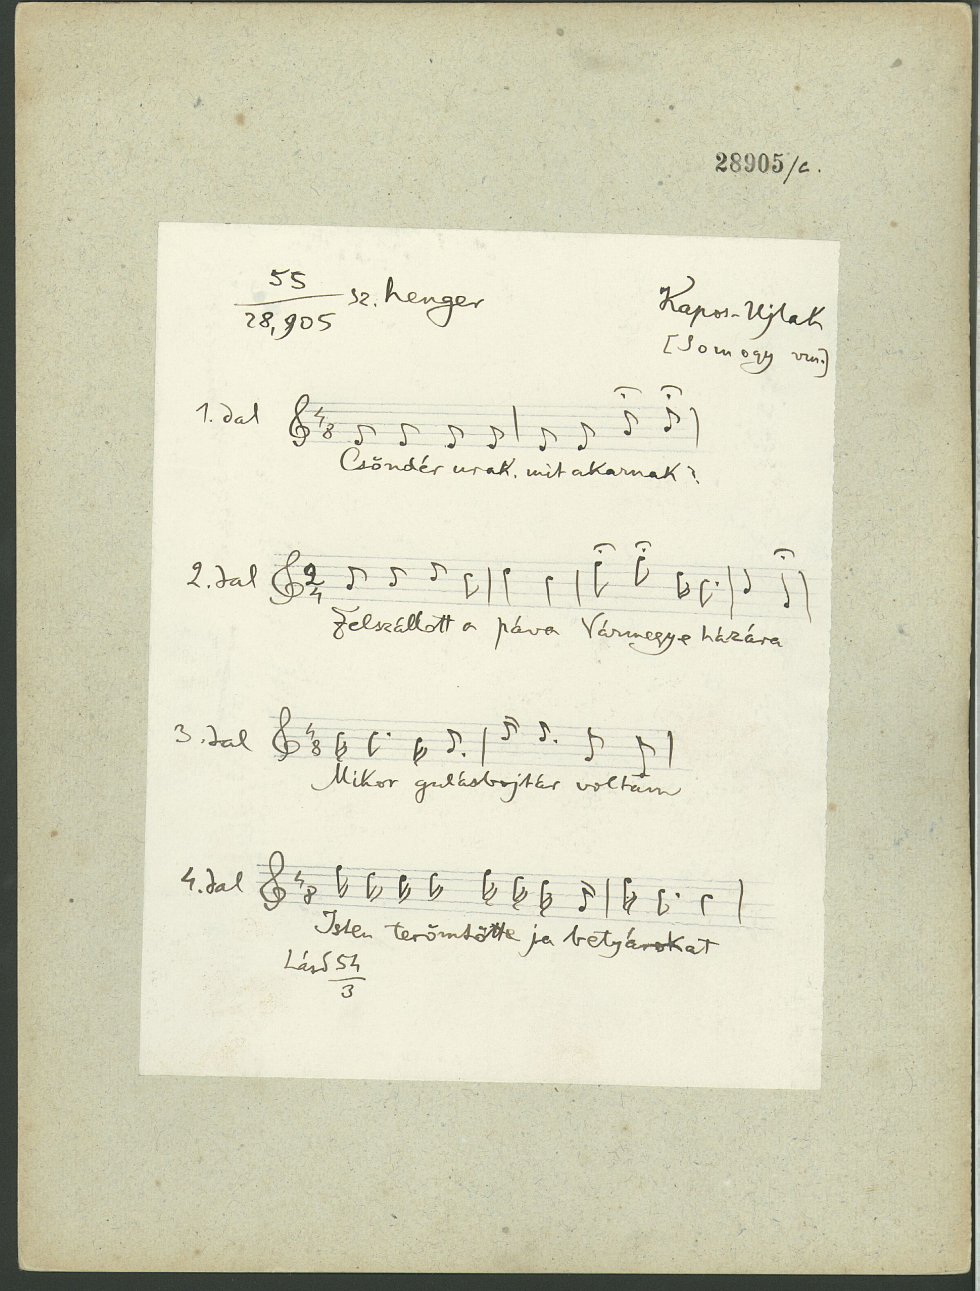 28905/c.
55
28,905 sz. henger
Kapos-Ujlak
[Somogy vm.]
1. dal
4/8
Csöndér urak, mit akarnak?
2. dal
2/4
Felszállott a páva Vármegye házára
3. dal
4/8
Mikor gulásbojtár voltam
4. dal
4/8
Isten terömtötte ja betyárokat
Lásd 54
3